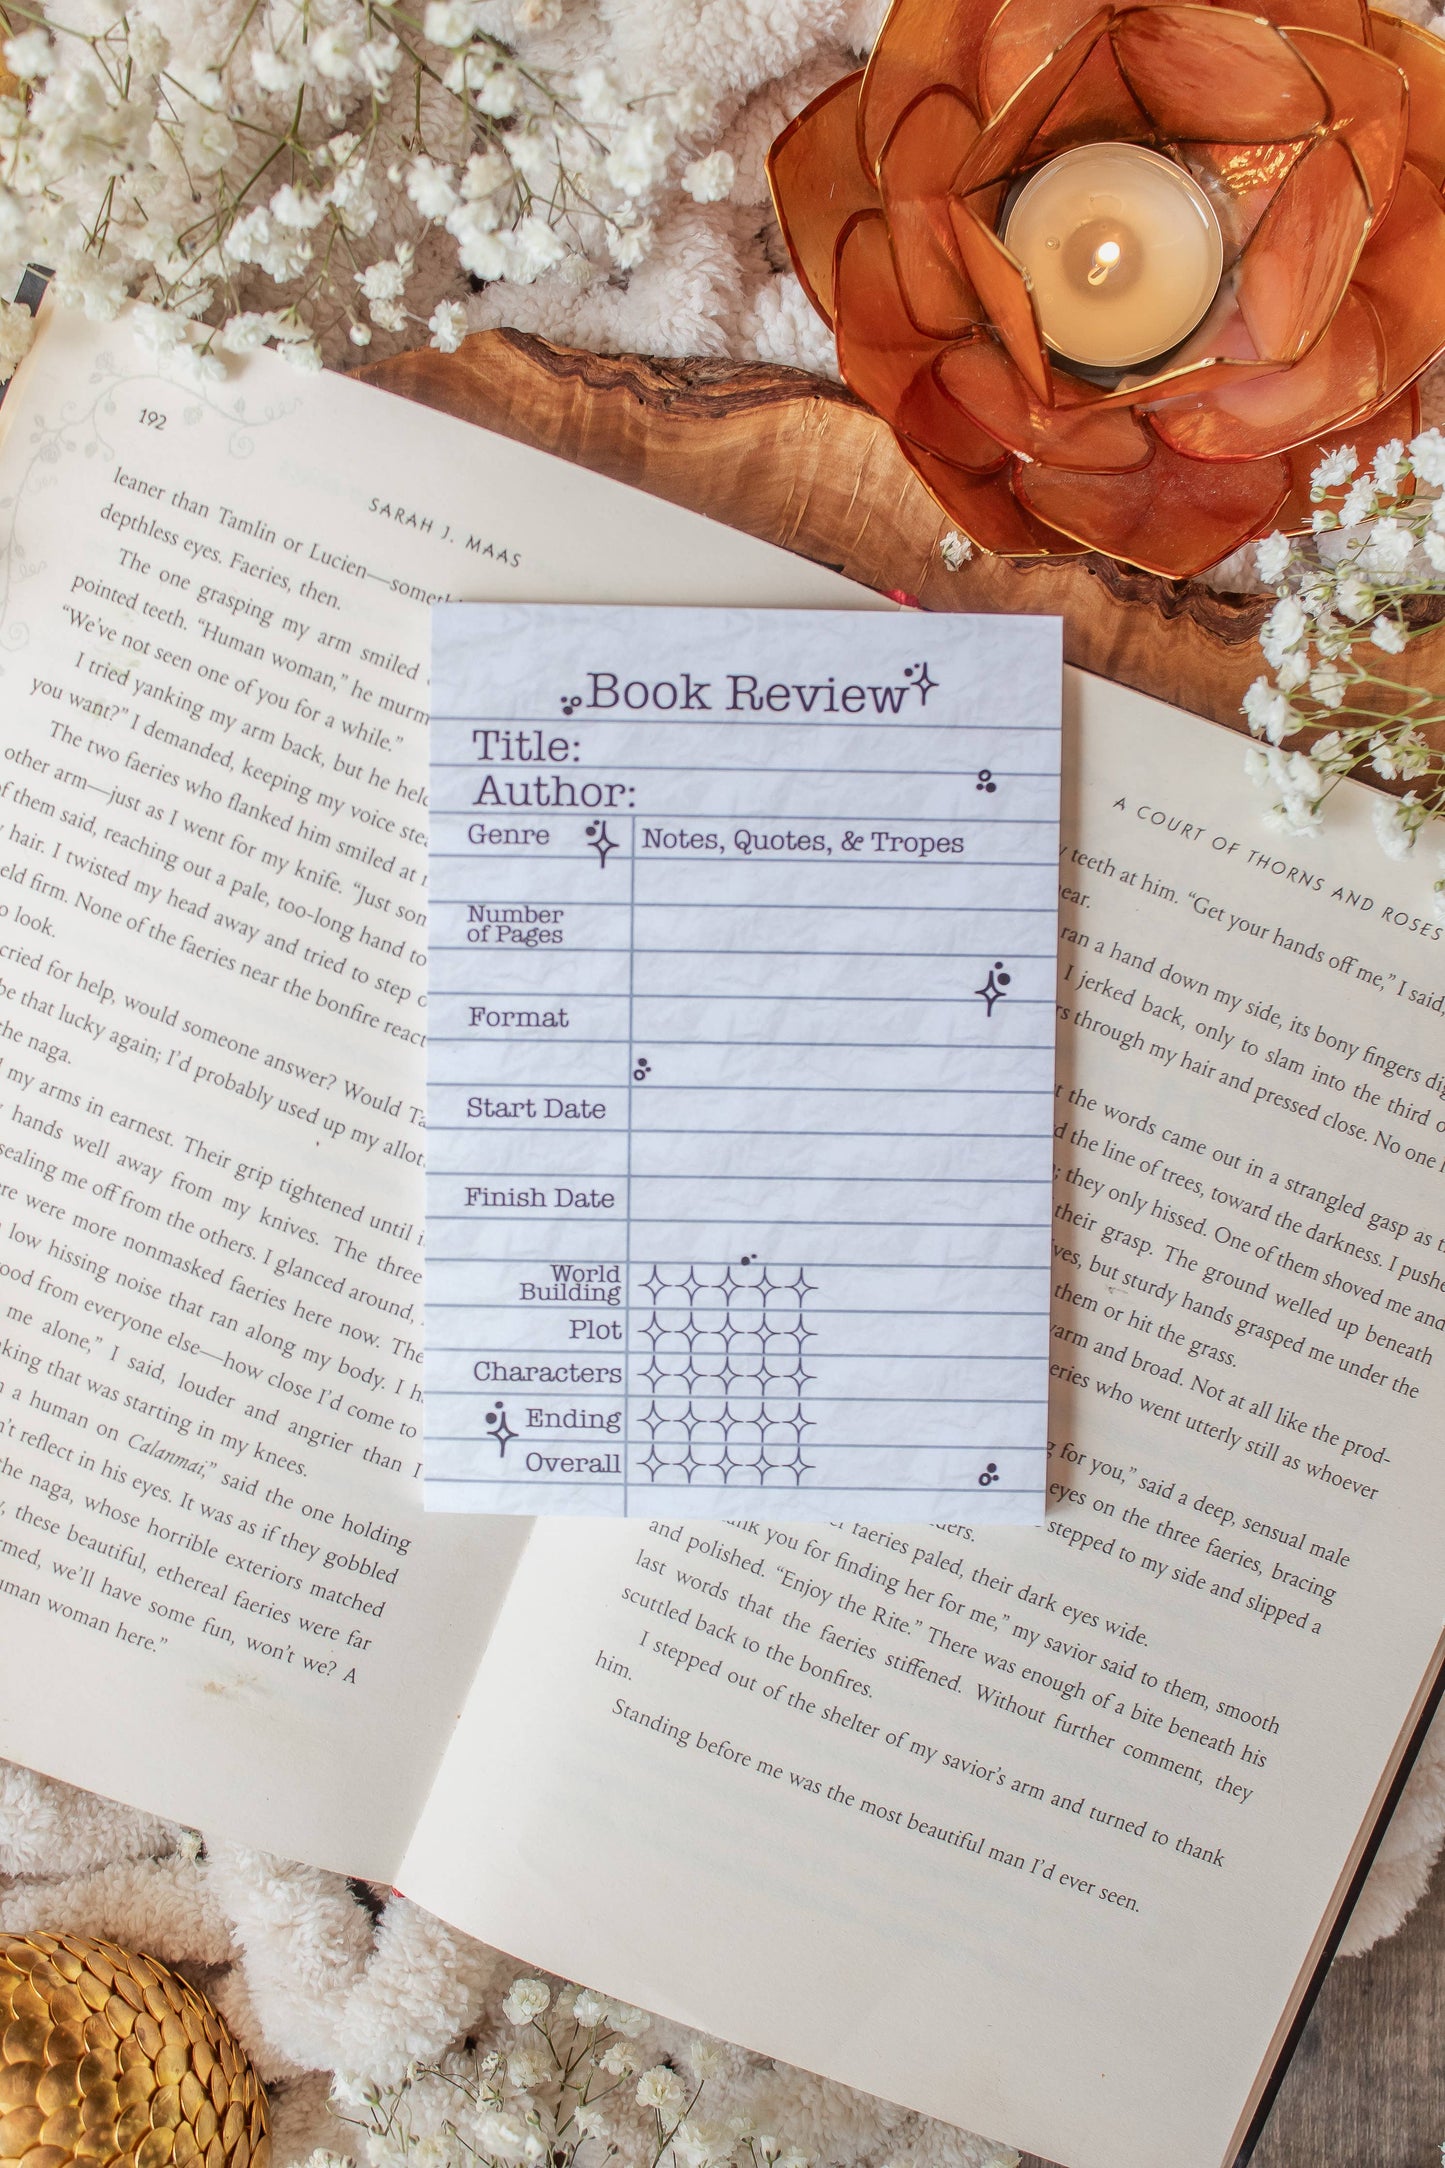 192
SARAH J. MAAS
leaner than Tamlin or Lucien—someth
depthless eyes. Faeries, then.
The one grasping my arm smiled
pointed teeth. “Human woman,” he murm
“We’ve not seen one of you for a while.”
I tried yanking my arm back, but he held
you want?” I demanded, keeping my voice stea
The two faeries who flanked him smiled at
other arm—just as I went for my knife. “Just som
of them said, reaching out a pale, too-long hand to
hair. I twisted my head away and tried to step
eld firm. None of the faeries near the bonfire react
o look.
cried for help, would someone answer? Would Ta
be that lucky again; I’d probably used up my allot
the naga.
my arms in earnest. Their grip tightened until
hands well away from my knives. The three
sealing me off from the others. I glanced around,
ere were more nonmasked faeries here now. The
low hissing noise that ran along my body. I h
ood from everyone else—how close I’d come to
me alone,” I said, louder and angrier than I
king that was starting in my knees.
a human on Calanmai,” said the one holding
n’t reflect in his eyes. It was as if they gobbled
the naga, whose horrible exteriors matched
these beautiful, ethereal faeries were far
rmed, we’ll have some fun, won’t we? A
uman woman here.”
Book Review
Title:
Author:
Genre
Notes, Quotes, & Tropes
Number
of Pages
Format
Start Date
Finish Date
World
Building
Plot
Characters
Ending
Overall
A COURT OF THORNS AND ROSES
teeth at him. “Get your hands off me,” I said,
ear.
ran a hand down my side, its bony fingers dig
I jerked back, only to slam into the third o
s through my hair and pressed close. No one
t the words came out in a strangled gasp as
d the line of trees, toward the darkness. I pushe
; they only hissed. One of them shoved me and
their grasp. The ground welled up beneath
ves, but sturdy hands grasped me under the
them or hit the grass.
warm and broad. Not at all like the prod-
eries who went utterly still as whoever
g for you,” said a deep, sensual male
eyes on the three faeries, bracing
stepped to my side and slipped a
ders.
er faeries paled, their dark eyes wide.
ank you for finding her for me,” my savior said to them, smooth
and polished. “Enjoy the Rite.” There was enough of a bite beneath his
last words that the faeries stiffened. Without further comment, they
scuttled back to the bonfires.
I stepped out of the shelter of my savior’s arm and turned to thank
him.
Standing before me was the most beautiful man I’d ever seen.